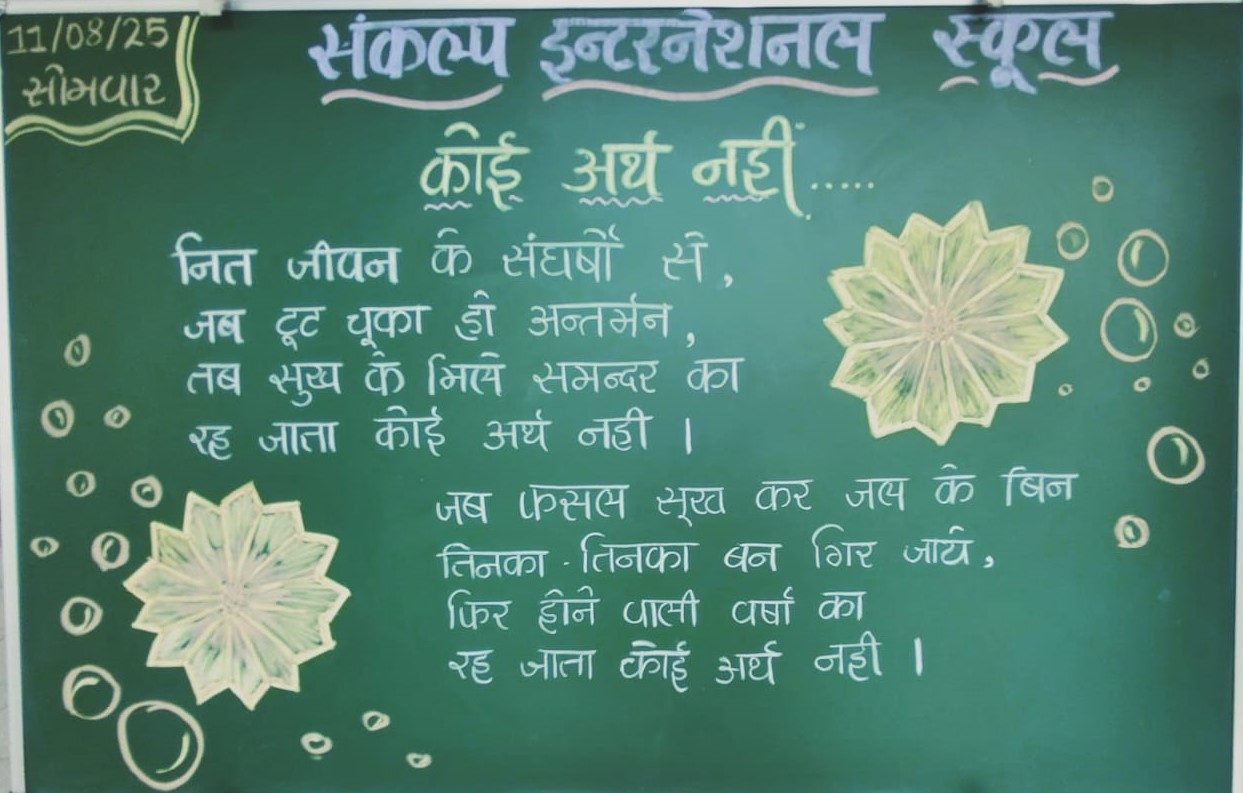 11/08/25
सोमवार
संकल्प इन्टरनेशनल स्कूल
कोई अर्थ नहीं.....
नित जीवन के संघर्षो से,
जब टूट चूका हो अन्तर्मन,
तब सुख के मिले समन्दर का
रह जाता कोई अर्थ नही ।
जब फसल सूख कर जल के बिन
तिनका - तिनका बन गिर जाये,
फिर होने वाली वर्षा का
रह जाता कोई अर्थ नही ।